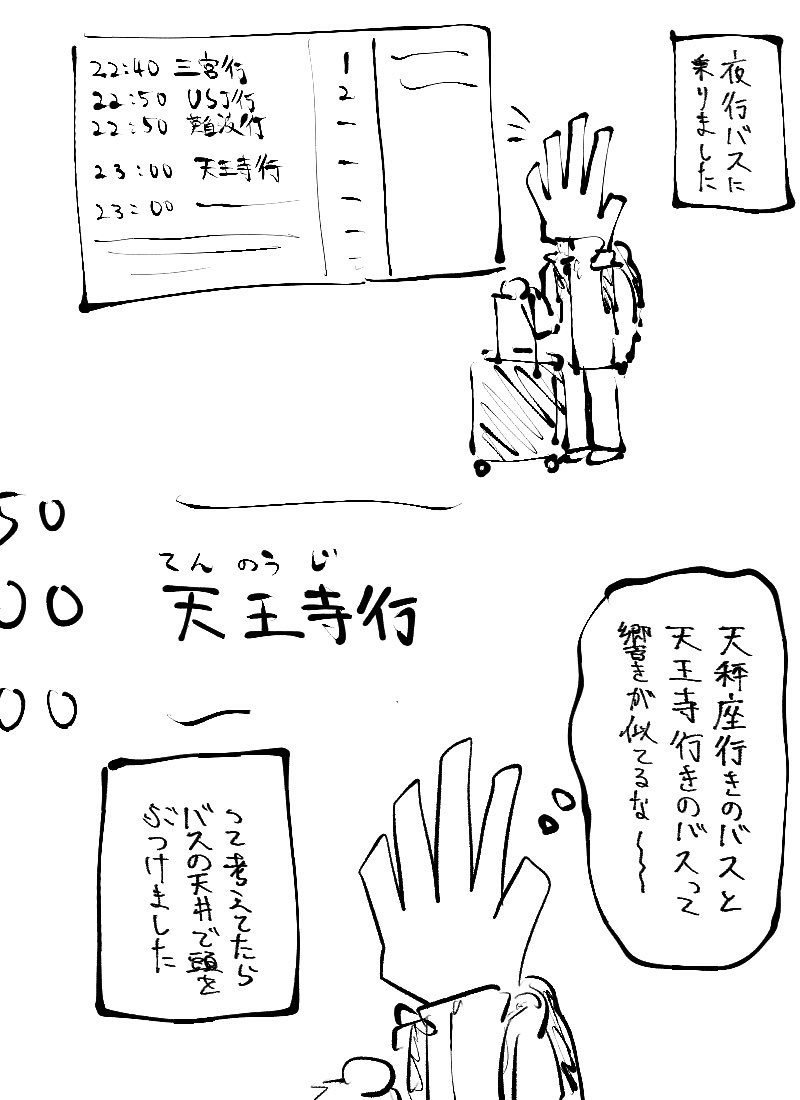 夜行バスに
乗りました
22:40 三宮行 1
22:50 USJ行 2
22:50 難波行
23:00 天王寺行
23:00
50
00
てんのうじ
天王寺行
00
天秤座行きのバスと
天王寺行きのバスって
響きが似てるな〜〜
って考えてたら
バスの天井で頭を
ぶつけました